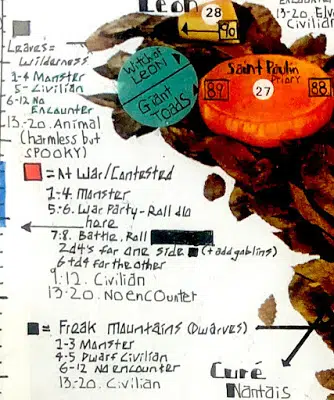 Leon
28
90
13-20. Elv
Civilian
Leaves=
Wilderness
1-4 Monster
5- Civilian
6-12 No
Encounter
13-20. Animal
(harmless but
SPOOKY)
Witch of
LEON
GIANT
TOADS
Saint Paulin
Priory
89
27
88
= At War/Contested
1-4. Monster
5-6. War Party - Roll d10
here
7-8. Battle. Roll
2d4's for one side (+add goblins)
6+d4 for the other
9-12. Civilian
13-20. No encounter
= Freak Mountains (Dwarves)
1-3 Monster
4-5 Dwarf Civilian
6-12 No encounter
13-20. Civilian
Curé
Nantais